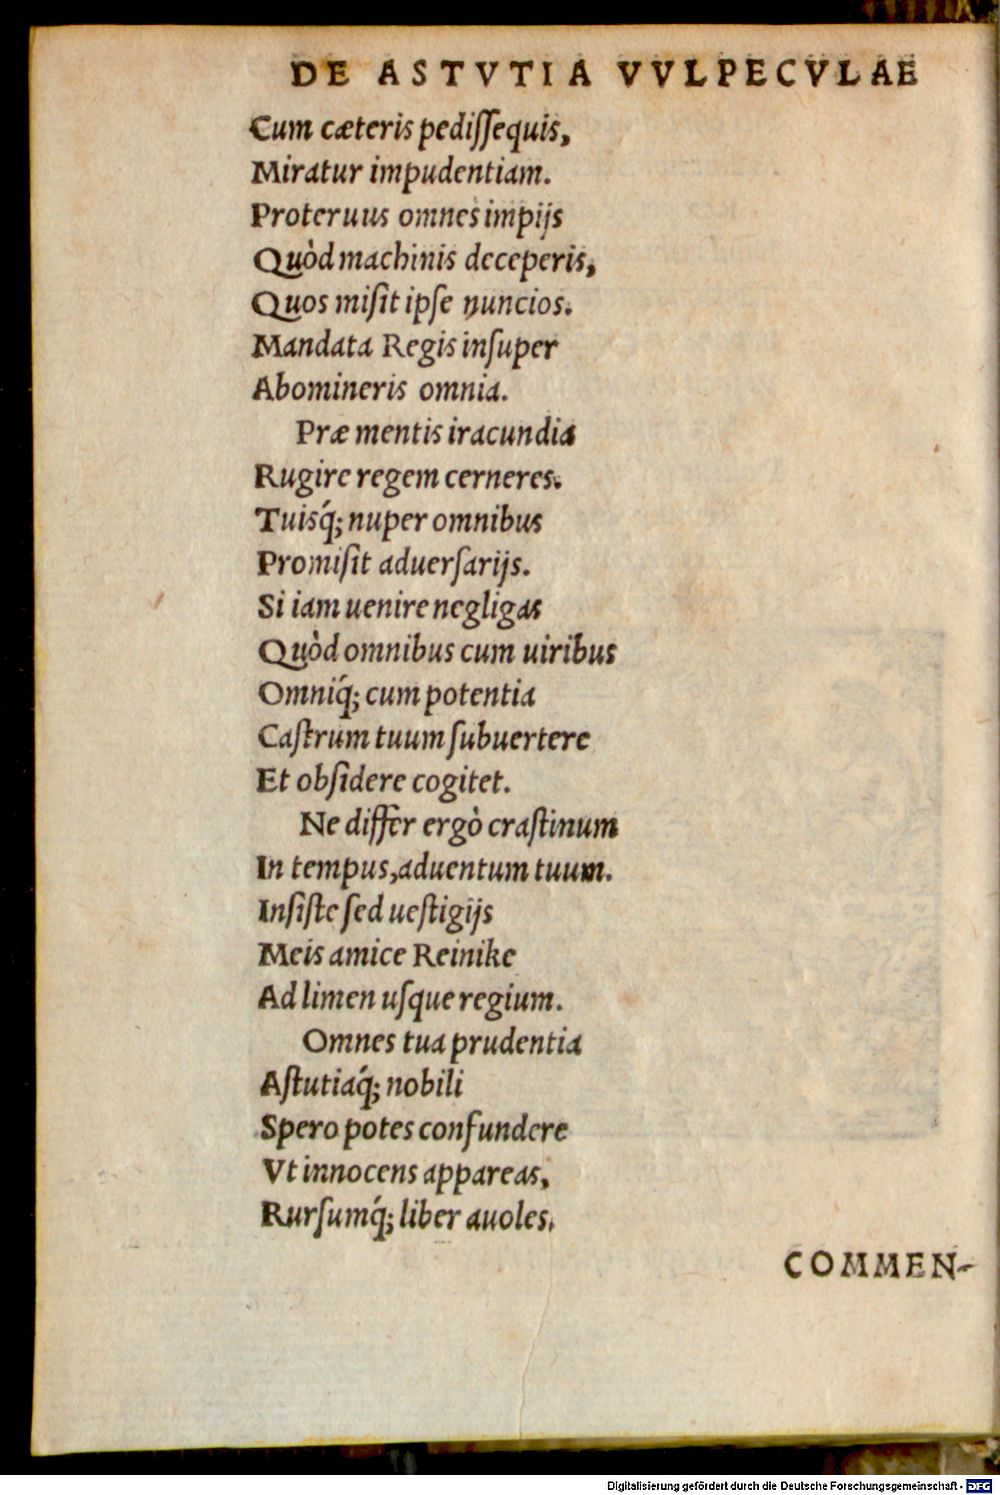 DE ASTVTIA VVLPECVLAE
Cum cæteris pediſſequis,
Miratur impudentiam.
Proteruus omnes impijs
Quòd machinis deceperis,
Quos miſit ipſe nuncios.
Mandata Regis inſuper
Abomineris omnia.
Præ mentis iracundia
Rugire regem cerneres.
Tuisq́; nuper omnibus
Promiſit aduerſarijs.
Si iam uenire negligas
Quòd omnibus cum uiribus
Omniq́; cum potentia
Caſtrum tuum ſubuertere
Et obſidere cogitet.
Ne differ ergò craſtinum
In tempus,aduentum tuum.
Inſiſte ſed ueſtigijs
Meis amice Reinike
Ad limen uſque regium.
Omnes tua prudentia
Aſtutiaq́; nobili
Spero potes confundere
Vt innocens appareas,
Rurſumq́; liber auoles.
COMMEN-
Digitalisierung gefördert durch die Deutsche Forschungsgemeinschaft - DFG